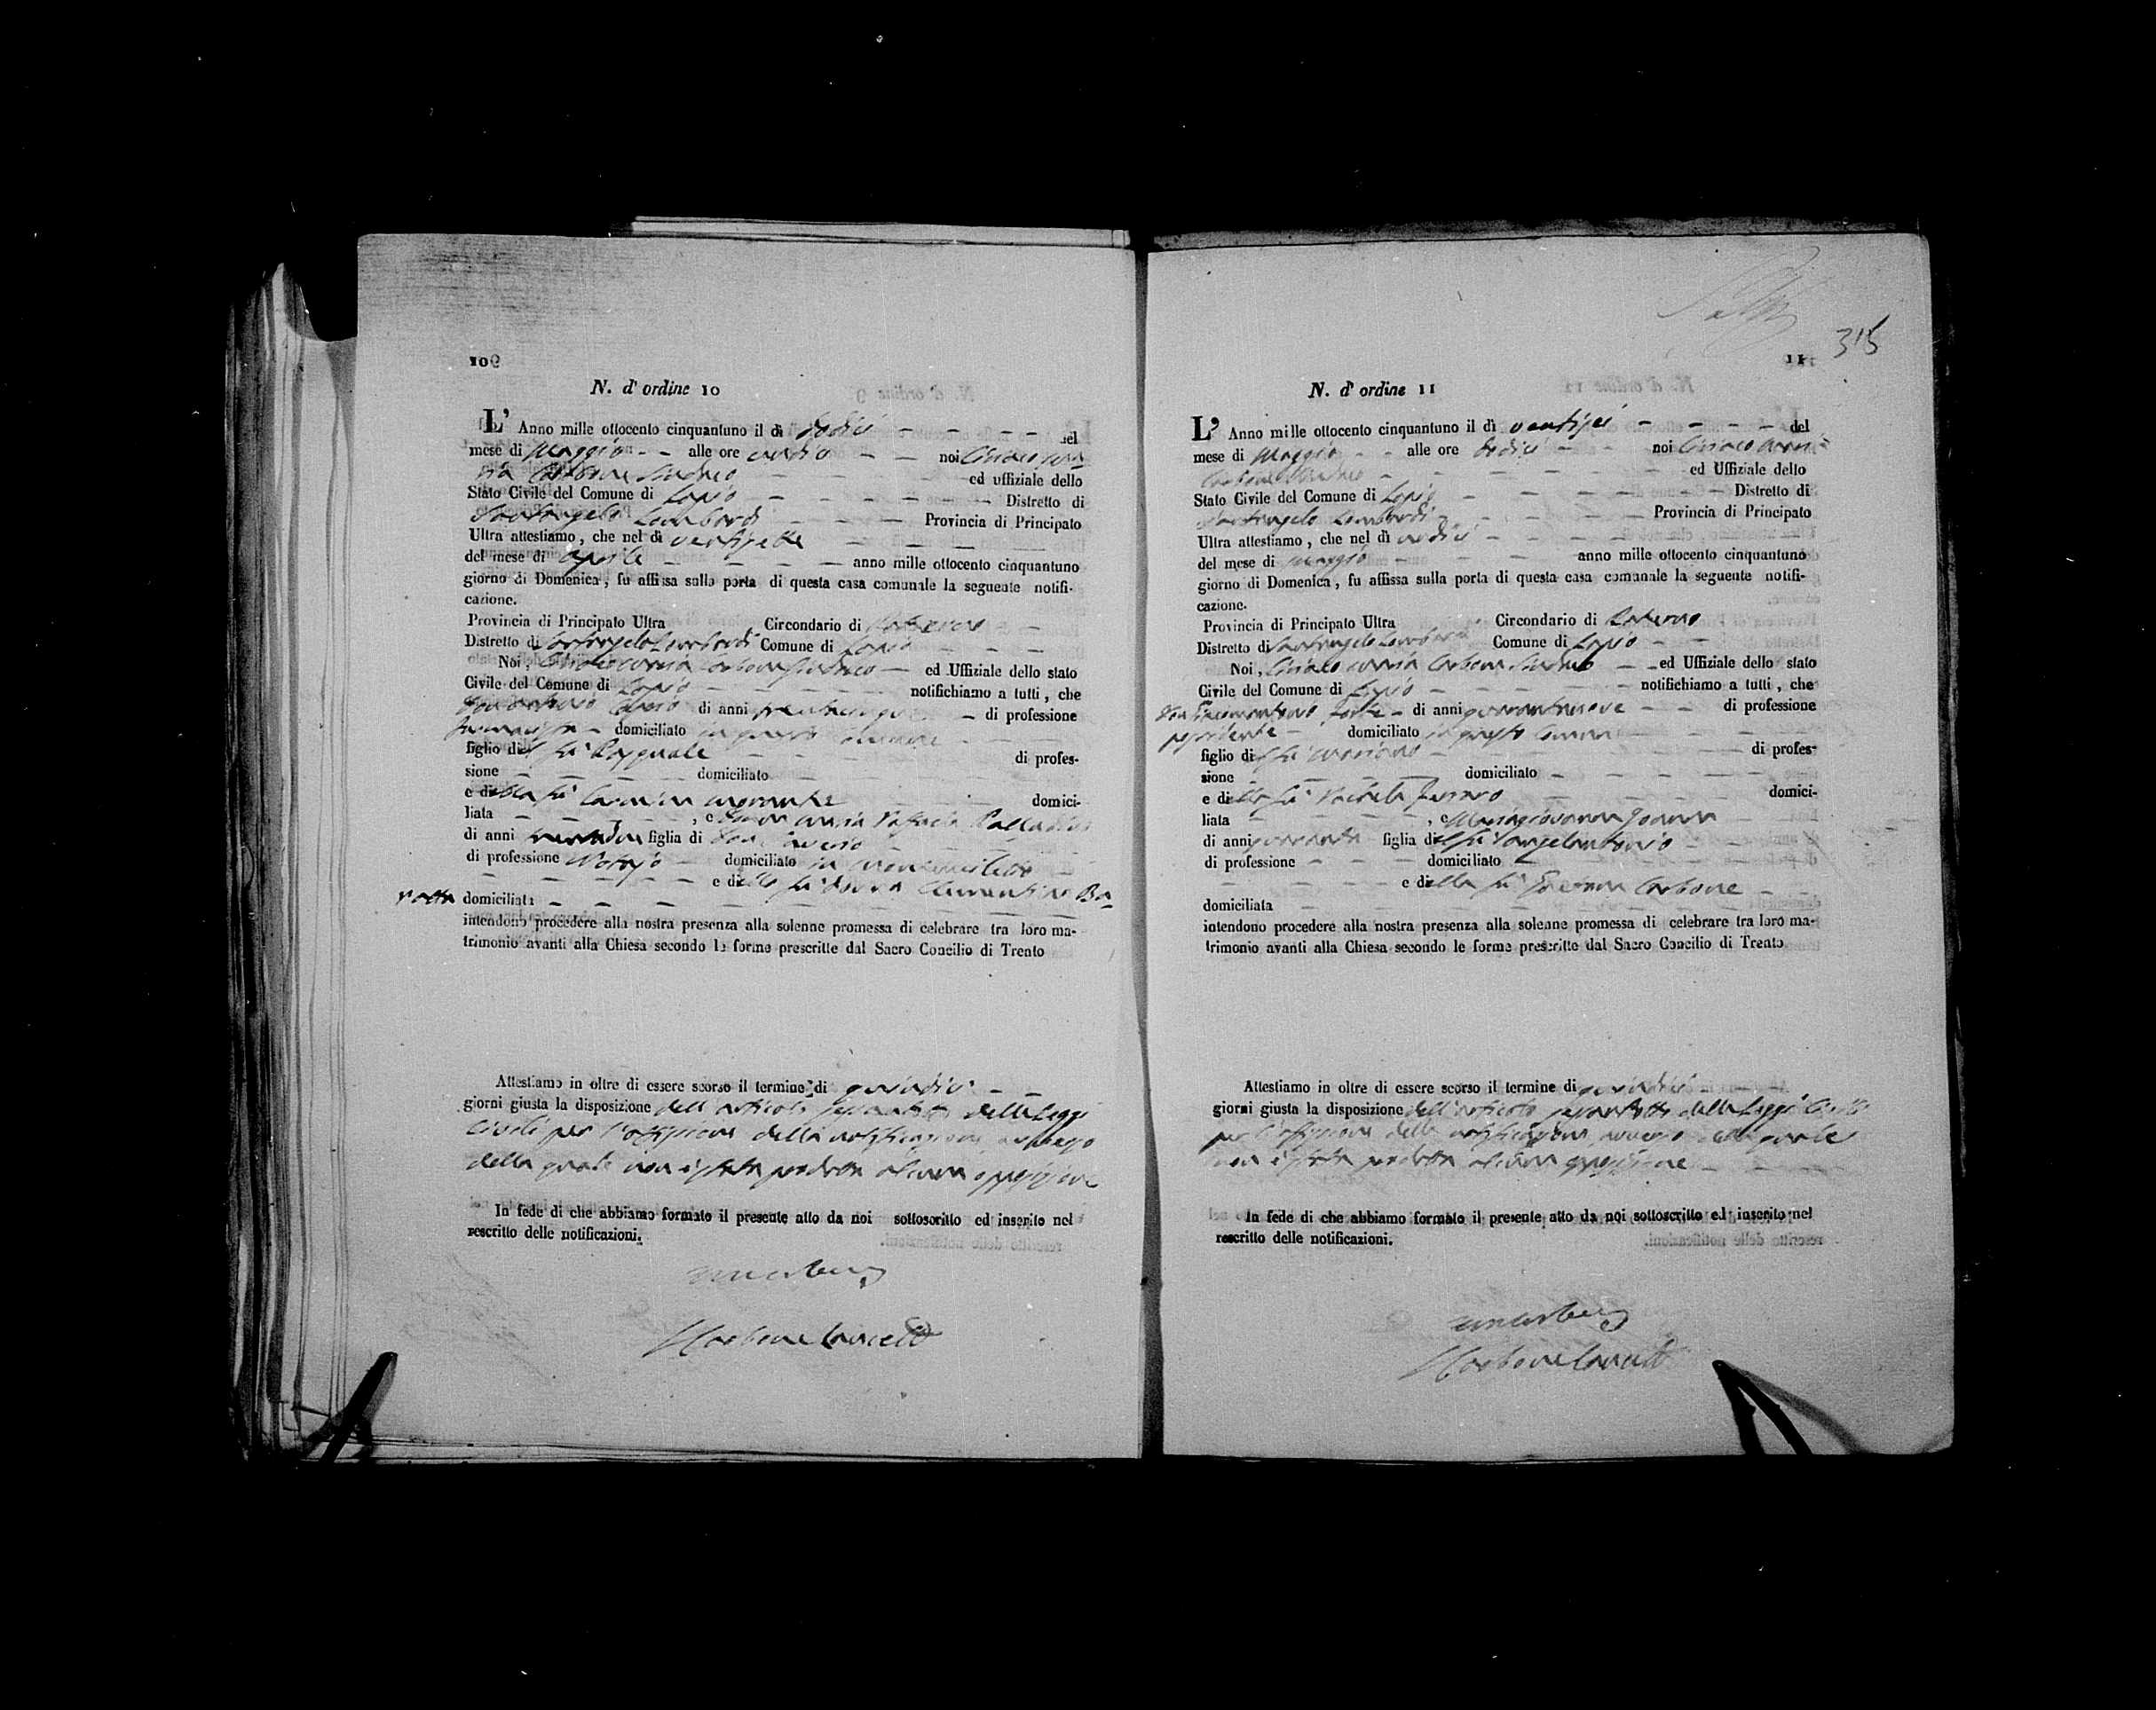 109
N. d' ordine 10
L' Anno mille ottocento cinquantuno il dì dodici del
mese di Maggio alle ore undici noi Ciriaco Ma
ria Carbone Sindaco ed uffiziale dello
Stato Civile del Comune di Lapio Distretto di
Santangelo Lombardi Provincia di Principato
Ultra attestiamo, che nel dì ventisette
del mese di Aprile anno mille ottocento cinquantuno
giorno di Domenica, fu affissa sulla porta di questa casa comunale la seguente notifi-
cazione.
Provincia di Principato Ultra Circondario di
Distretto di Santangelo Lombardi Comune di Lapio
Noi, Ciriaco Maria Carbone Sindaco ed Uffiziale dello stato
Civile del Comune di Lapio notifichiamo a tutti, che
di anni di professione
domiciliato in questo Comune
figlio del fu Pasquale di profes-
sione domiciliato
e della fu Carmina Morante domici-
liata , e Donna Maria Rafaela Palladino
di anni figlia di Don Saverio
di professione Notajo domiciliato in
e della fu Donna Clementina Ba=
ratta domiciliata
intendono procedere alla nostra presenza alla solenne promessa di celebrare tra loro ma-
trimonio avanti alla Chiesa secondo le forme prescritte dal Sacro Concilio di Trento
Attestiamo in oltre di essere scorso il termine di quindici
giorni giusta la disposizione dell'articolo sessantotto delle Leggi
Civili per l'affissione della notificazione
della quale non è stata prodotta alcuna opposizione
In fede di che abbiamo formato il presente atto da noi sottoscritto ed inserito nel
rescritto delle notificazioni.
Carbone
315
N. d' ordine 11
L' Anno mille ottocento cinquantuno il dì ventisei del
mese di Maggio alle ore dodici noi Ciriaco Maria
Carbone Sindaco ed Uffiziale dello
Stato Civile del Comune di Lapio Distretto di
Santangelo Lombardi Provincia di Principato
Ultra attestiamo, che nel dì undici
del mese di Maggio anno mille ottocento cinquantuno
giorno di Domenica, fu affissa sulla porta di questa casa comunale la seguente notifi-
cazione.
Provincia di Principato Ultra Circondario di Paterno
Distretto di Santangelo Lombardi Comune di Lapio
Noi, Ciriaco Maria Carbone Sindaco ed Uffiziale dello stato
Civile del Comune di Lapio notifichiamo a tutti, che
Forte di anni quarantanove di professione
domiciliato in questo Comune
figlio del fu di profes-
sione domiciliato
e della fu domici-
liata , e Mariagiovanna
di anni quaranta figlia del fu Angelantonio
di professione domiciliato
e della fu Gaetana Carbone
domiciliata
intendono procedere alla nostra presenza alla solenne promessa di celebrare tra loro ma-
trimonio avanti alla Chiesa secondo le forme prescritte dal Sacro Concilio di Trento
Attestiamo in oltre di essere scorso il termine di quindici
giorni giusta la disposizione dell'articolo sessantotto delle Leggi Civili
per l'affissione della notificazione della quale
non è stata prodotta alcuna opposizione
In fede di che abbiamo formato il presente atto da noi sottoscritto ed inserito nel
rescritto delle notificazioni.
Carbone